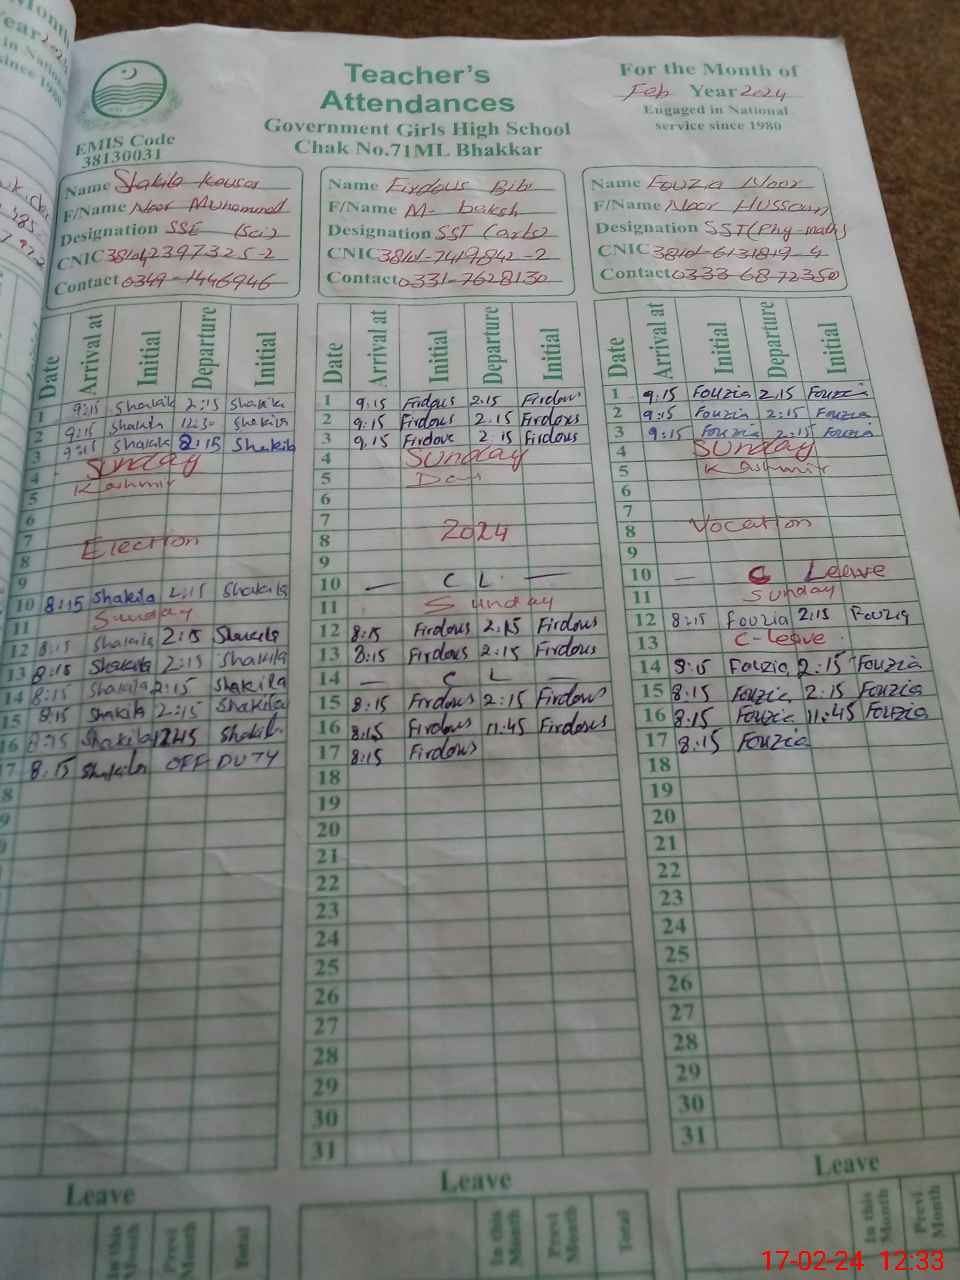 Teacher's
Attendances
Government Girls High School
Chak No.71ML Bhakkar
For the Month of
Feb Year 2024
Engaged in National
service since 1980
EMIS Code
38130031
Name Shakila Kousar
F/Name Noor Muhammad
Designation SSE (Sci)
CNIC
Contact 0349-1446946
Name Firdous Bibi
F/Name M. baksh
Designation SST (arts)
CNIC 38101-7419842-2
Contact 0331-7628130
Name Fouzia Noor
F/Name Noor Hussain
Designation SST (Phy-math)
CNIC 38101-6131819-4
Contact 0333-6872350
Date Arrival at Initial Departure Initial
1 9:15 Shakila 2:15 Shakila
2 9:15 Shakila 12:30 Shakila
3 9:15 Shakila 2:15 Shakila
4 Sunday
5 Kashmir
6
7
8 Election
9
10 8:15 Shakila 2:15 Shakila
11 Sunday
12 8:15 Shakila 2:15 Shakila
13 8:15 Shakila 2:15 Shakila
14 8:15 Shakila 2:15 Shakila
15 8:15 Shakila 2:15 Shakila
16 8:15 Shakila 1245 Shakila
17 8:15 Shakila OFF DUTY
8
9
Leave
In this Month Previ Month Total
Date Arrival at Initial Departure Initial
1 9:15 Firdous 2:15 Firdous
2 9:15 Firdous 2:15 Firdous
3 9:15 Firdous 2:15 Firdous
4 Sunday
5 Day
6
7
8 2024
9
10 — C L —
11 Sunday
12 8:15 Firdous 2:15 Firdous
13 8:15 Firdous 2:15 Firdous
14 — C L —
15 8:15 Firdous 2:15 Firdous
16 8:15 Firdous 11:45 Firdous
17 8:15 Firdous
18
19
20
21
22
23
24
25
26
27
28
29
30
31
Leave
In this Month Previ Month Total
Date Arrival at Initial Departure Initial
1 9:15 Fouzia 2:15 Fouzia
2 9:15 Fouzia 2:15 Fouzia
3 9:15 Fouzia 2:15 Fouzia
4 Sunday
5 Kashmir
6
7
8 Vocation
9
10 — C Leave
11 Sunday
12 8:15 Fouzia 2:15 Fouzia
13 C-leave
14 8:15 Fouzia 2:15 Fouzia
15 8:15 Fouzia 2:15 Fouzia
16 8:15 Fouzia 11:45 Fouzia
17 8:15 Fouzia
18
19
20
21
22
23
24
25
26
27
28
29
30
31
Leave
In this Month Previ Month
17-02-24 12:33